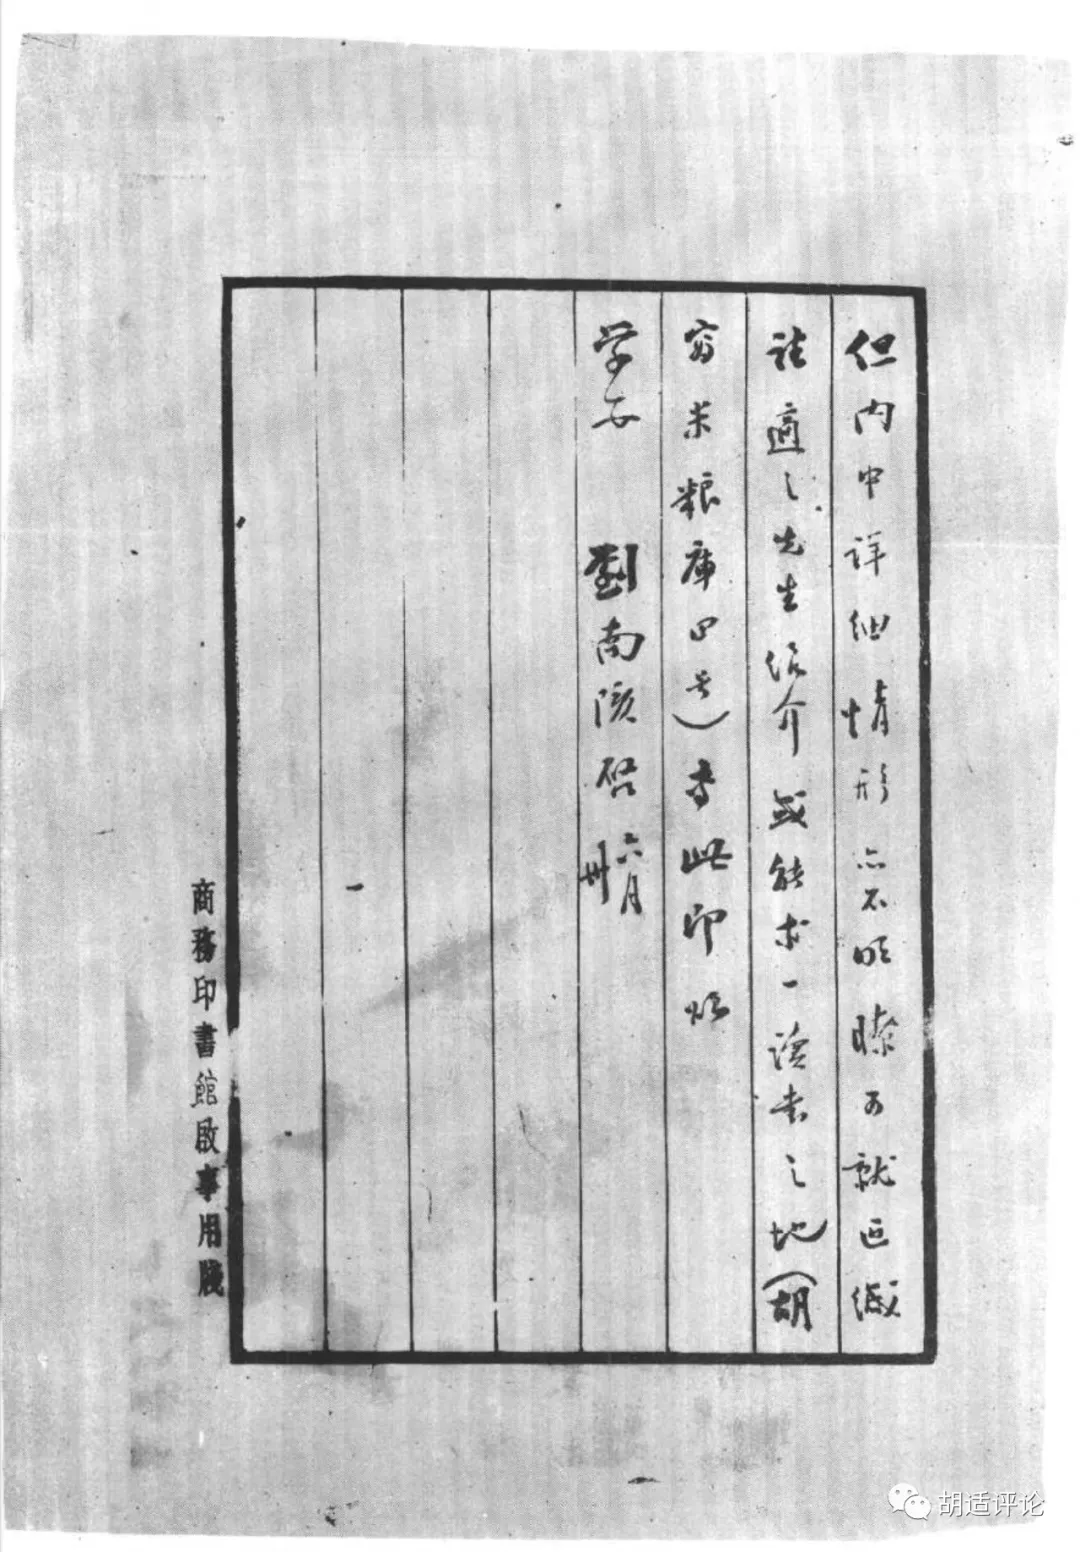 但内中详细情形亦不明瞭可就近缄
请適之先生绍介或能求一读书之地(胡
寓米粮库四号)专此即颂
学安 劉南陔启 六月
卅
商務印書館啟事用牋
胡适评论